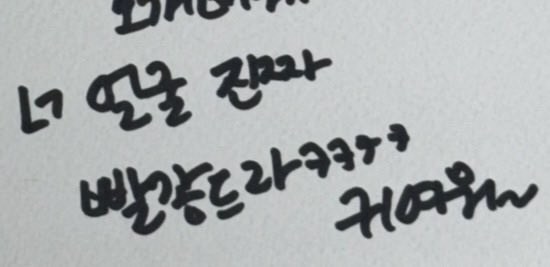 너 얼굴 진짜
빨갛드라ㅋㅋㅋㅋ
귀여워~